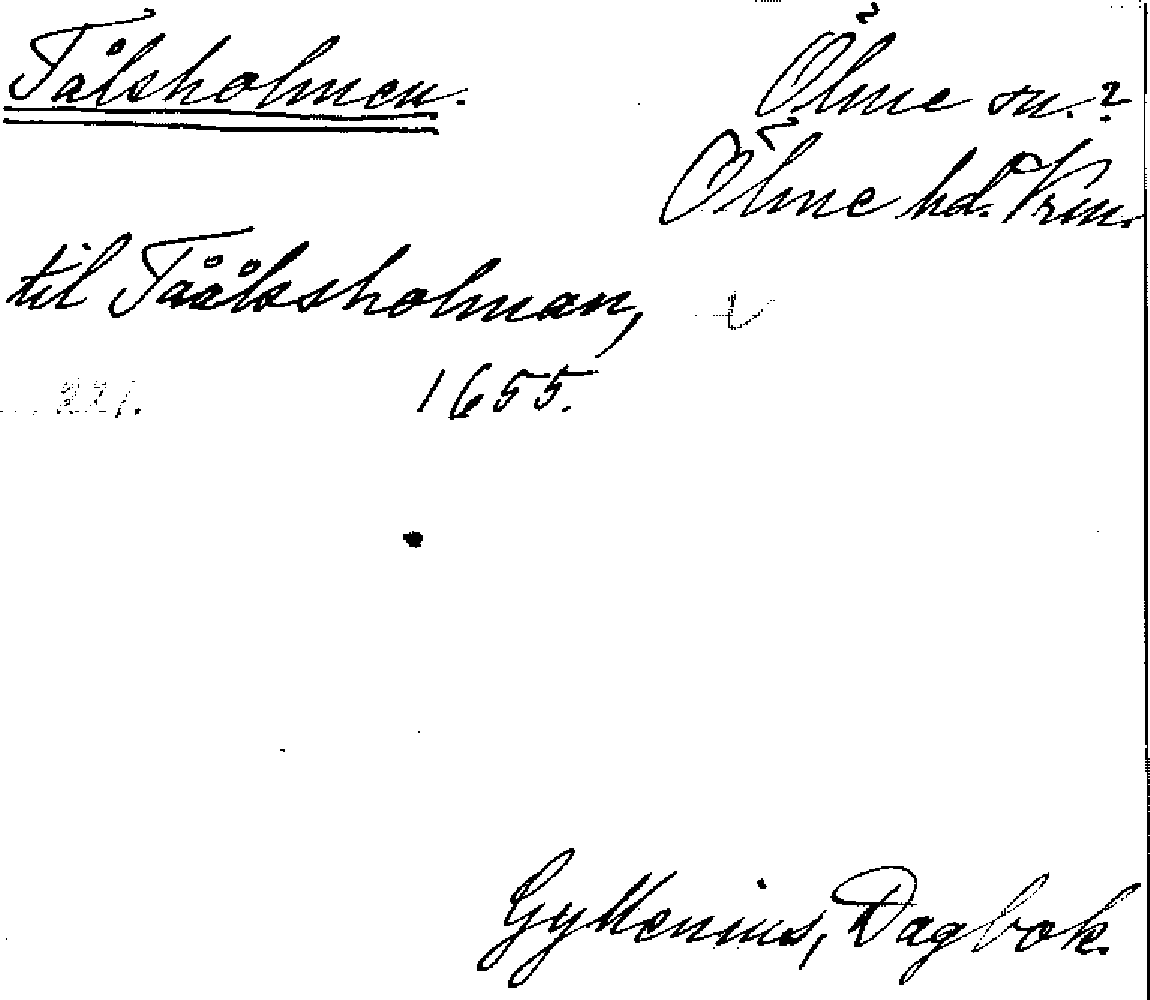 Tålsholmen.
Ölme sn.?
Ölme hd. Vrm.
til Tåålssholman,
221. 1655.
Gyllenius, Dagbok.